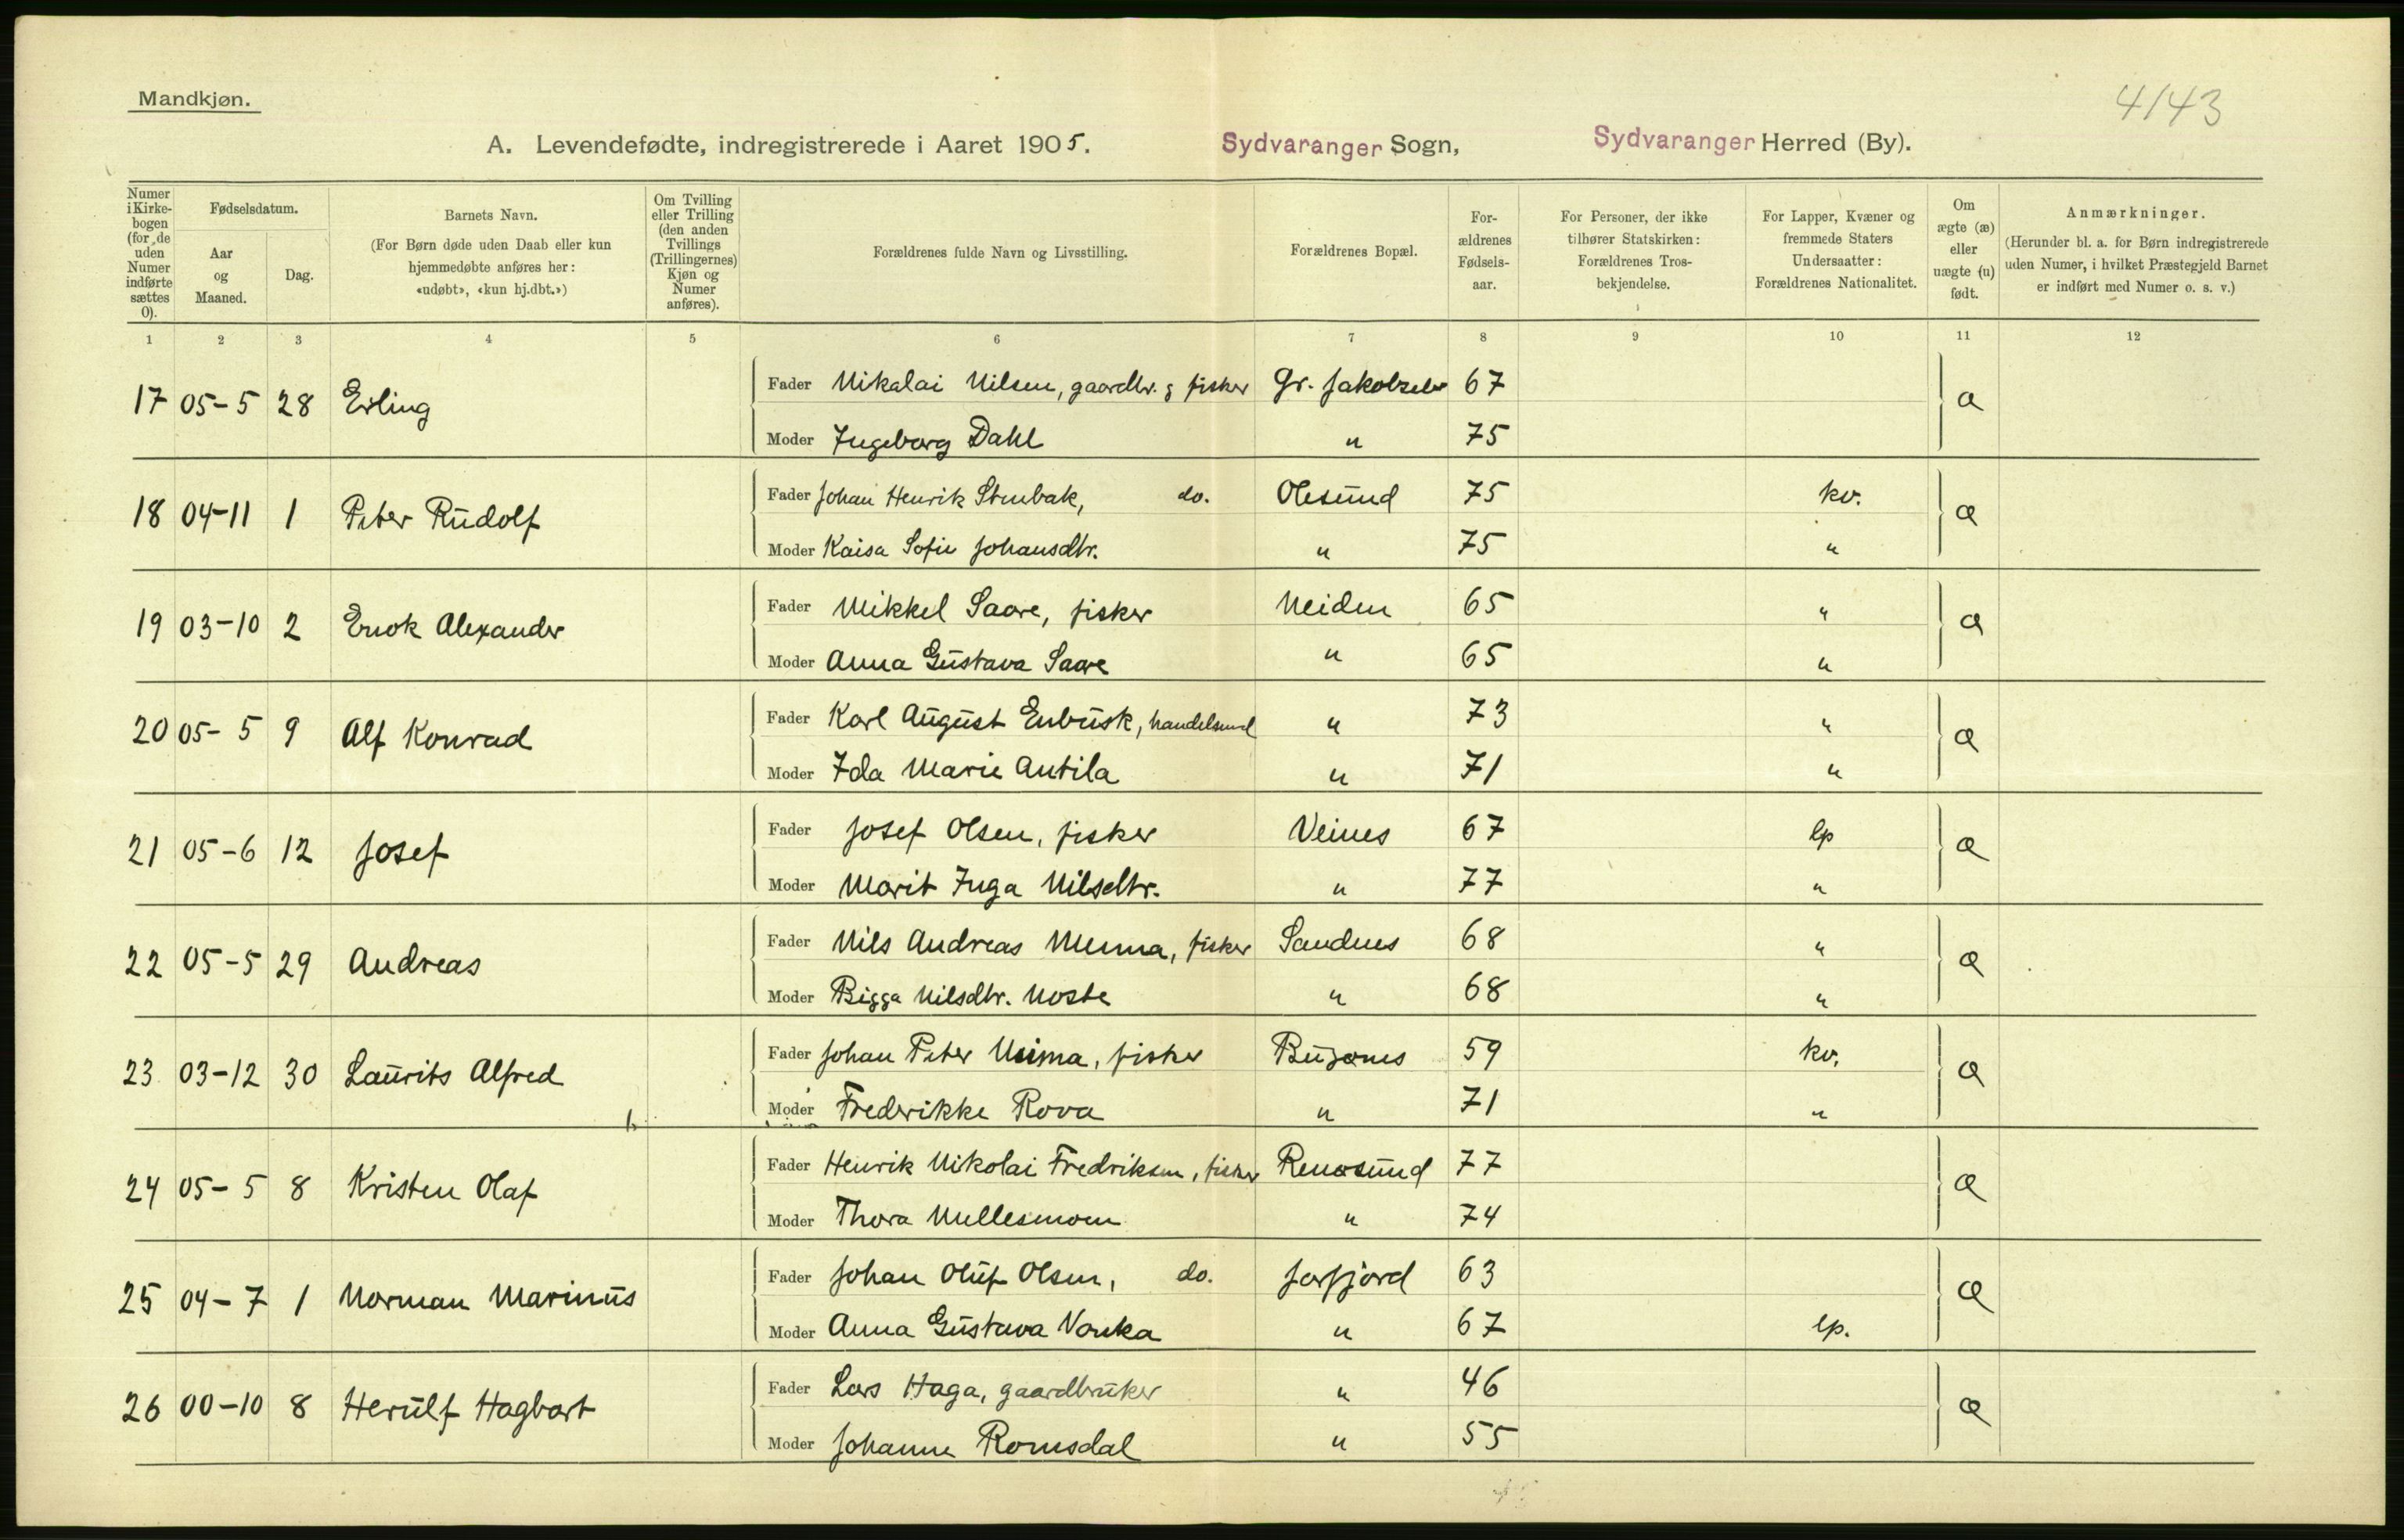 Mandkjøn.
4143
A. Levendefødte, indregistrerede i Aaret 1905. Sydvaranger Sogn, Sydvaranger Herred (By).
Numer i Kirkebogen (for de uden Numer indførte sættes 0).
Fødselsdatum.
Aar og Maaned.
Dag.
Barnets Navn.
(For Børn døde uden Daab eller kun hjemmedøbte anføres her: «udøbt», «kun hj.dbt.»)
Om Tvilling eller Trilling (den anden Tvillings (Trillingernes) Kjøn og Numer anføres).
Forældrenes fulde Navn og Livsstilling.
Forældrenes Bopæl.
Forældrenes Fødselsaar.
For Personer, der ikke tilhører Statskirken: Forældrenes Trosbekjendelse.
For Lapper, Kvæner og fremmede Staters Undersaatter: Forældrenes Nationalitet.
Om ægte (æ) eller uægte (u) født.
Anmærkninger.
(Herunder bl. a. for Børn indregistrerede uden Numer, i hvilket Præstegjeld Barnet er indført med Numer o. s. v.)
1 2 3 4 5 6 7 8 9 10 11 12
17 05-5 28 Erling Fader Nikalai Nilsen, gaardbr. & fisker Gr. Jakobselv 67 æ
Moder Ingeborg Dahl " 75
18 04-11 1 Peter Rudolf Fader Johan Henrik Stenbak, do. Olesund 75 kv. æ
Moder Kaisa Sofie Johansdtr. " 75 "
19 03-10 2 Enok Alexander Fader Mikkel Saare, fisker Neiden 65 " æ
Moder Anna Gustava Saare " 65 "
20 05-5 9 Alf Konrad Fader Karl August Enbusk, handelsmd " 73 " æ
Moder Ida Marie Antila " 71 "
21 05-6 12 Josef Fader Josef Olsen, fisker Veines 67 lp æ
Moder Marit Inga Nilsdtr. " 77 "
22 05-5 29 Andreas Fader Nils Andreas Menna, fisker Sandnes 68 " æ
Moder Bigga Nilsdtr. Noste " 68 "
23 03-12 30 Laurits Alfred Fader Johan Peter Niima, fisker Bugønes 59 kv. æ
Moder Frederikke Rova " 71 "
24 05-5 8 Kristen Olaf Fader Henrik Nikolai Fredriksen, fisker Renøsund 77 æ
Moder Thora Nullesmoen " 74
25 04-7 1 Norman Marinus Fader Johan Oluf Olsen, do. Jarfjord 63 æ
Moder Anna Gustava Vonka " 67 lp.
26 00-10 8 Herulf Hagbart Fader Lars Haga, gaardbruker " 46 æ
Moder Johanne Romsdal " 55